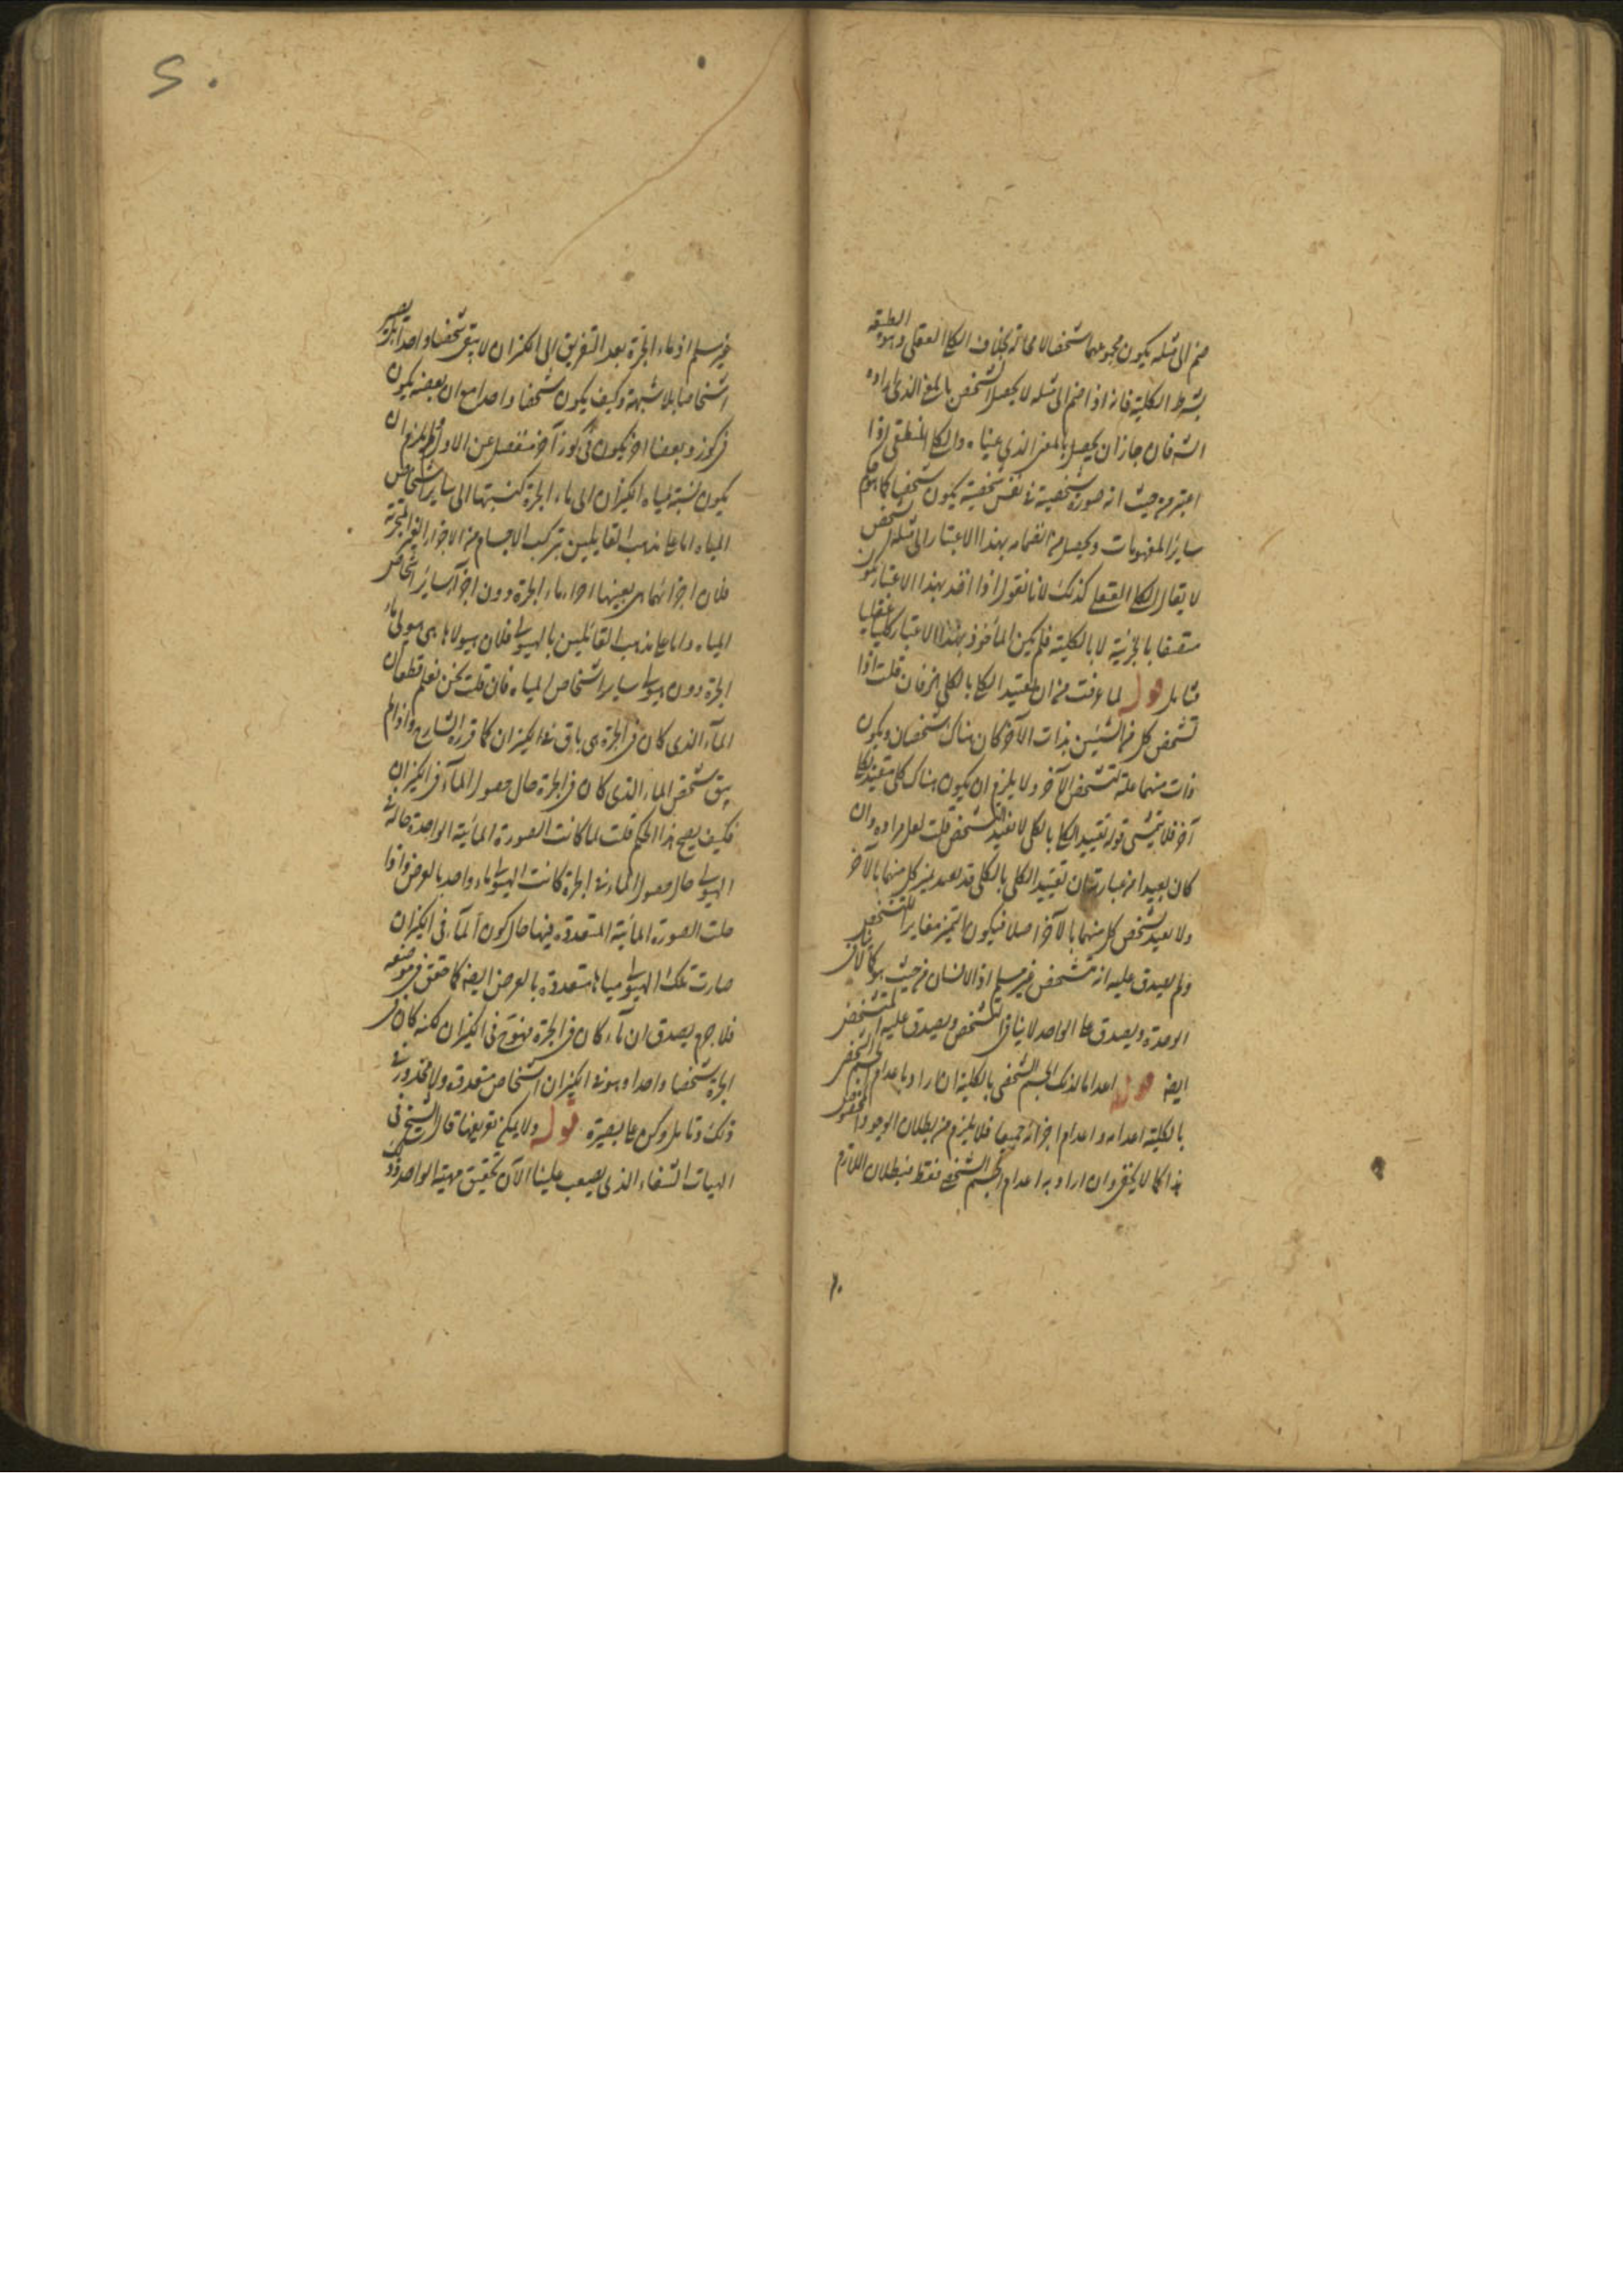 ضم الى مثله يكون مجموعهما شخصا لا محالة بخلاف الكلي العقلي وهو الطبيعة
بشرط الكلية فانه اذا ضم الى مثله لا يحصل الشخص بالمعنى الذي اراده
الشارح فان جاز ان يحصل بالمعنى الذي عيناه والكلي المنطقي اذا
اعتبر من حيث انه صورة شخصية في نفس شخصية يكون شخصيا كما هو حكم
ساير المفهومات ويحصل من انضمامه بهذا الاعتبار الى مثله شخص
لا يقال الكلي العقلي كذلك لانا نقول اذا اخذ بهذا الاعتبار يكون
متصفا بالجزئية لا بالكلية فلم يكن المأخوذ بهذا الاعتبار كليا عقليا
فتأمل قوله لما عرفت من ان تقييد الكلي بالكلي الخ فان قلت اذا
تشخص كل من الشيئين بذات الآخر كان هناك شخصان ويكون
ذات منهما علة لتشخص الآخر ولا يلزم ان يكون هناك كلي مقيد بكلي
آخر فلا يتمشى قوله تقييد الكلي بالكلي لا يفيد التشخص قلت لعل مراده وان
كان بعيدا من عبارته ان تقييد الكلي بالكلي قد يفيد تميز كل منهما بالآخر
ولا يفيد تشخص كل منهما بالآخر اصلا فيكون التميز مغايرا للتشخص
ولم يصدق عليه انه متشخص غير مسلم اذ الانسان من حيث هو كما لا ينافى
الوحدة ويصدق على الواحد لا ينافى التشخص ويصدق عليه المتشخص
ايضا قوله اعداما لذلك الجسم الشخصي بالكلية ان اراد باعدام الجسم الشخصي
بالكلية اعدامه واعدام اجزائه جميعا فلا يلزم من بطلان الوجود المخصوص
هذا كما لا يخفى وان اراد به اعدام الجسم الشخصي فقط فبطلان اللازم
غير مسلم اذ ماء الجرة بعد التفريق الى الكيزان لا يبقى شخصا واحدا بل يصير
اشخاصا بلا شبهة وكيف يكون شخصا واحدا مع ان بعضه يكون
في كوز وبعضا آخر يكون في كوز آخر منفصل عن الاول ولا يلزم ان
يكون نسبة مياه الكيزان الى ماء الجرة كنسبتها الى ساير اشخاص
المياه اما على مذهب القايلين بتركب الاجسام من الاجزاء الغير المتجزية
فلان اجزائها هي بعينها اجزاء ماء الجرة دون اجزاء ساير اشخاص
المياه واما على مذهب القائلين بالهيولى فلان هيولاها هي هيولى ماء
الجرة دون هيولى ساير اشخاص المياه فان قلت نحن نعلم قطعا ان
الماء الذي كان في الجرة هي باق في الكيزان كما قرره الشارح واذا لم
يبق شخص الماء الذي كان في الجرة حال حصول الماء في الكيزان
فكيف يصح هذا الحكم قلت لما كانت الصورة المائية الواحدة حالة
الهيولى حال حصول الماء في الجرة كانت الهيولى ماء واحدا بالعرض واذا
حلت الصورة المائية المتعددة فيها حال كون الماء في الكيزان
صارت تلك الهيولى مياها متعددة بالعرض ايضا كما حقق في موضعه
فلا جرم يصدق ان ماء كان في الجرة فهو في الكيزان لكنه كان في
الجرة شخصا واحدا وهو في الكيزان اشخاص متعددة ولا محذور في
ذلك فتأمل وكن على بصيرة قوله ولا يمكن تعريفها قال الشيخ في
الهيات الشفاء الذي يصعب علينا الآن تحقيق مهية الواحد